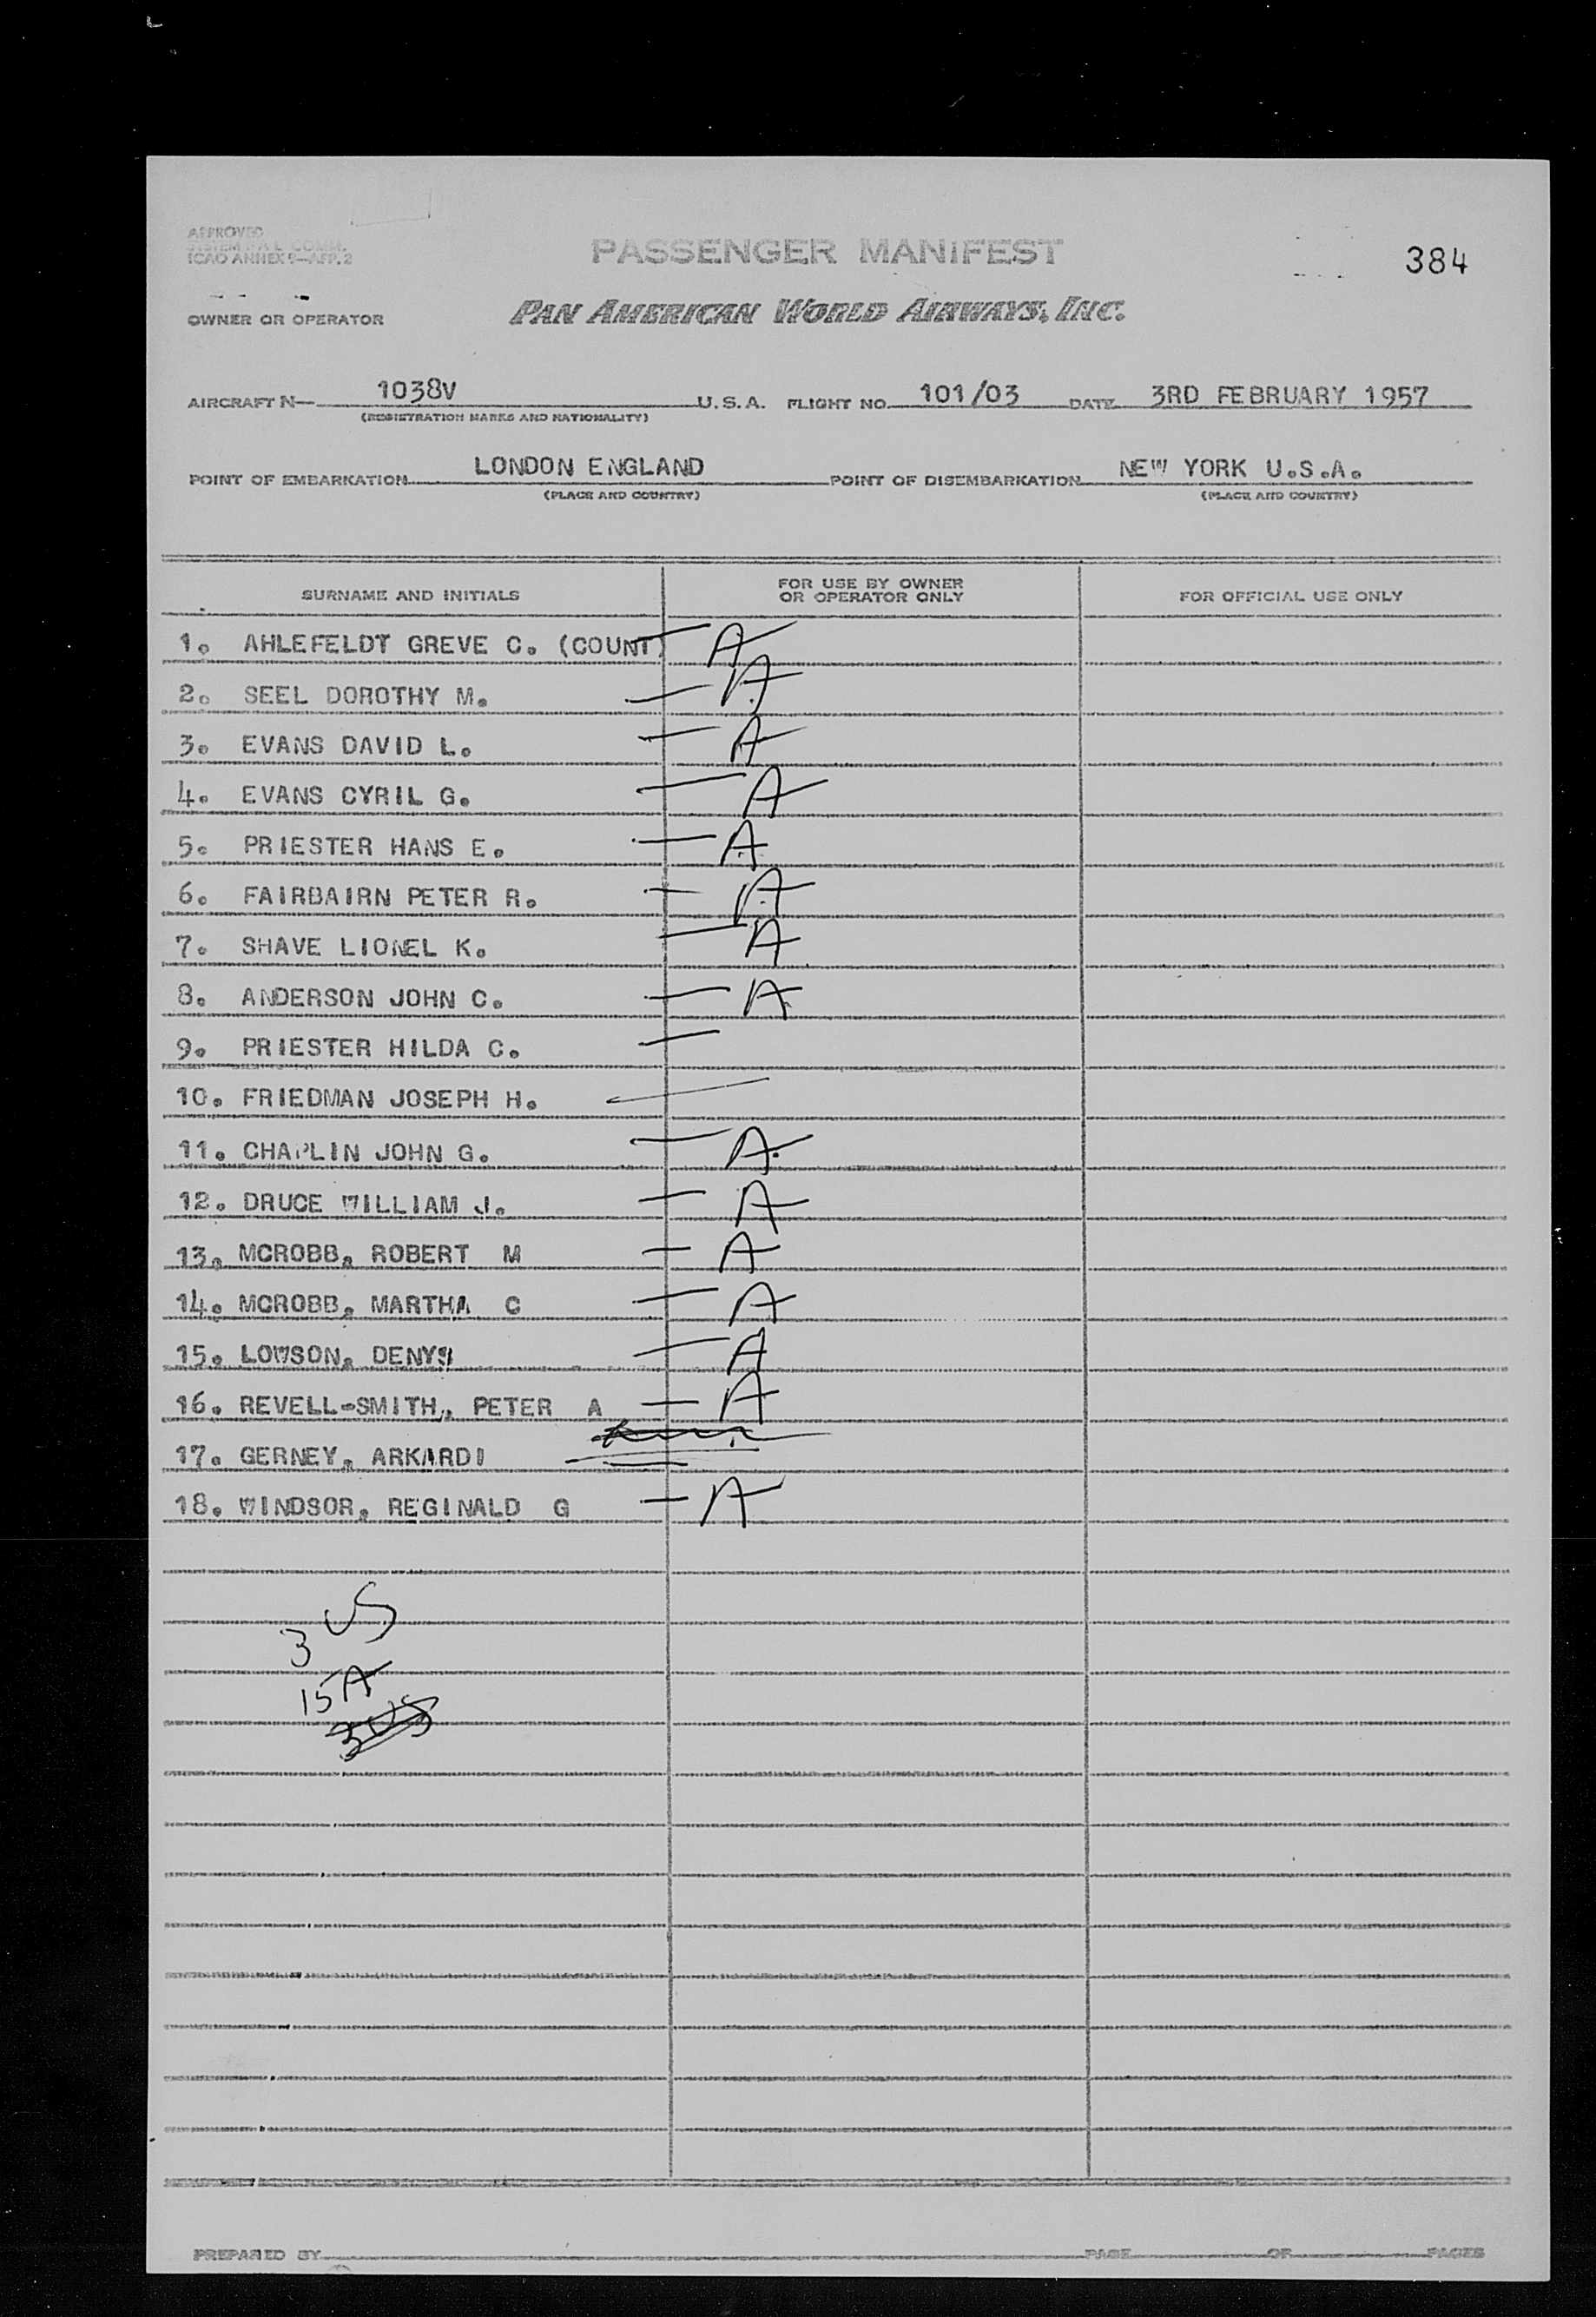 APPROVED
SYSTEM F A L COMM.
ICAO ANNEX 9—APP. 2
PASSENGER MANIFEST
384
OWNER OR OPERATOR
PAN AMERICAN WORLD AIRWAYS, INC.
AIRCRAFT N— 1038V U.S.A. FLIGHT NO. 101/03 DATE 3RD FEBRUARY 1957
(REGISTRATION MARKS AND NATIONALITY)
POINT OF EMBARKATION LONDON ENGLAND POINT OF DISEMBARKATION NEW YORK U.S.A.
(PLACE AND COUNTRY) (PLACE AND COUNTRY)
SURNAME AND INITIALS FOR USE BY OWNER OR OPERATOR ONLY FOR OFFICIAL USE ONLY
1. AHLEFELDT GREVE C. (COUNT) — A
2. SEEL DOROTHY M. — A
3. EVANS DAVID L. — A
4. EVANS CYRIL G. — A
5. PRIESTER HANS E. — A
6. FAIRBAIRN PETER R. — A
7. SHAVE LIONEL K. — A
8. ANDERSON JOHN C. — A
9. PRIESTER HILDA C. —
10. FRIEDMAN JOSEPH H. —
11. CHAPLIN JOHN G. — A
12. DRUCE WILLIAM J. — A
13. MCROBB, ROBERT M — A
14. MCROBB, MARTHA C — A
15. LOWSON, DENYS — A
16. REVELL-SMITH, PETER A — A
17. GERNEY, ARKARDI —
18. WINDSOR, REGINALD G — A
3 US
15 A
3 US
PREPARED BY PAGE OF PAGES